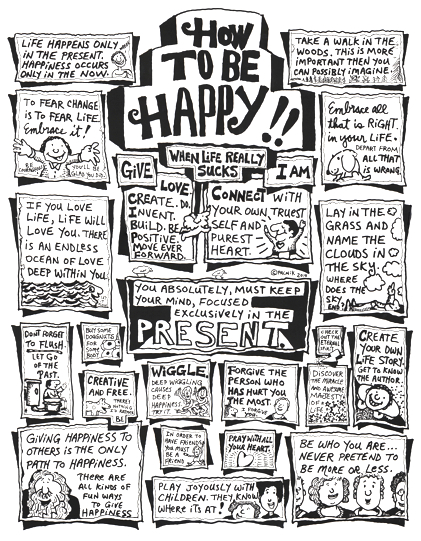 HOW
TO BE
HAPPY!!
LIFE HAPPENS ONLY
IN THE PRESENT.
HAPPINESS OCCURS
ONLY IN THE NOW.
TAKE A WALK IN THE
WOODS. THIS IS MORE
IMPORTANT THEN YOU
CAN POSSIBLY IMAGINE.
TO FEAR CHANGE
IS TO FEAR LIFE.
Embrace it!
BE
YOU'LL BE
GLAD YOU DID.
Embrace all
that is RIGHT
in your LIFE.
DEPART FROM
ALL THAT
IS WRONG.
WHEN LIFE REALLY
SUCKS
GIVE
LOVE.
CREATE. DO.
INVENT.
BUILD. BE
POSITIVE.
MOVE EVER
FORWARD.
I AM
CONNECT WITH
YOUR OWN TRUEST
SELF AND
PUREST
HEART.
IF YOU LOVE
LIFE, LIFE WILL
LOVE YOU. THERE
IS AN ENDLESS
OCEAN OF LOVE
DEEP WITHIN YOU.
LAY IN THE
GRASS AND
NAME THE
CLOUDS IN
THE SKY.
WHERE
DOES THE
SKY
END?
YOU ABSOLUTELY, MUST KEEP
YOUR MIND, FOCUSED
EXCLUSIVELY IN THE
PRESENT.
DON'T FORGET
TO FLUSH.
LET GO
OF THE
PAST.
BUY SOME
DOUGHNUTS
FOR
SOME
BODY
CREATIVE
AND FREE.
THERE'S
NOTHING
BE
WIGGLE.
DEEP WIGGLING
CAUSES
DEEP
HAPPINESS.
TRY IT
FORGIVE THE
PERSON WHO
HAS HURT YOU
THE MOST.
I FORGIVE
YOU
CHECK
OUT THE
ETERNAL
DISCOVER
THE MIRACLE
AND AWESOME
MAJESTY
OF
LIFE
CREATE
YOUR OWN
LIFE STORY.
GET TO KNOW
THE AUTHOR.
GIVING HAPPINESS TO
OTHERS IS THE ONLY
PATH TO HAPPINESS.
THERE ARE
ALL KINDS OF
FUN WAYS
TO GIVE
HAPPINESS
IN ORDER TO
HAVE FRIENDS
YOU MUST
BE A
FRIEND
PRAY WITH ALL
YOUR HEART.
BE WHO YOU ARE...
NEVER PRETEND TO
BE MORE OR LESS.
PLAY JOYOUSLY WITH
CHILDREN. THEY KNOW
WHERE ITS AT!